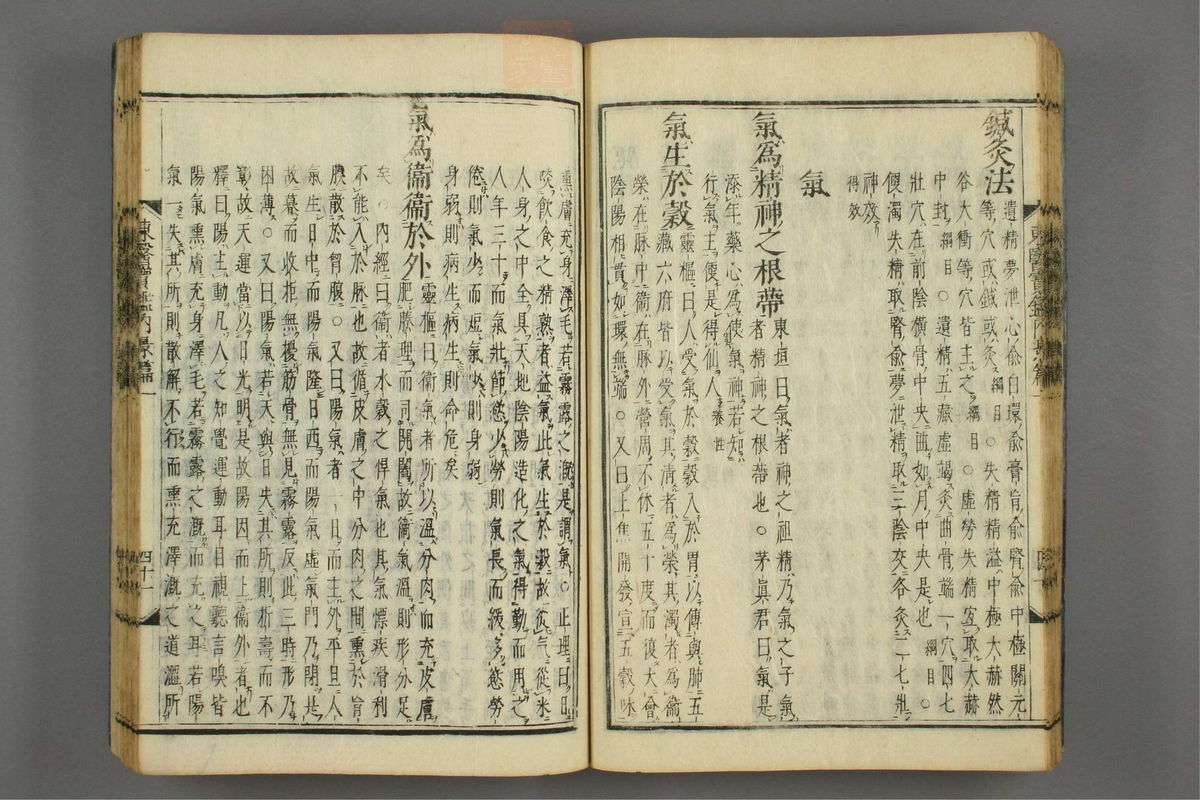 鍼灸法
遺精夢泄心俞白環俞膏肓俞腎俞中極關元
等穴或鍼或灸綱目○失精精溢中極大赫然
谷大衝等穴皆主之綱目○虛勞失精宜取大赫
中封綱目○遺精五藏虛竭灸曲骨端一穴四七
壯穴在前陰橫骨中央曲如月中央是也綱目○
便濁失精取腎俞夢泄精取三陰交各灸二七壯
神效
得效
氣
氣為精神之根蔕
東垣曰氣者神之祖精乃氣之子氣
者精神之根蔕也○茅眞君曰氣是
添年藥心為使氣神若知
行氣主便是得仙人養性
氣生於穀
靈樞曰人受氣於穀穀入於胃以傳與肺五
藏六府皆以受氣其淸者為榮其濁者為衞
榮在脉中衞在脉外營周不休五十度而復大會
陰陽相貫如環無端○又曰上焦開發宣五穀味
熏膚充身澤毛若霧露之漑是謂氣○正理曰日
啖飮食之精熟者益氣此氣生於穀故從气從米
人身之中全具天地陰陽造化之氣得勤而用之
人年三十而氣壯節慾少勞則氣長而緩多慾勞
倦則氣少而短氣少則身弱
身弱則病生病生則命危矣
氣為衞衞於外
靈樞曰衞氣者所以溫分肉而充皮膚
肥腠理而司開闔故衞氣溫則形分足
矣○內經曰衞者水穀之悍氣也其氣慓疾滑利
不能入於脉也故循皮膚之中分肉之間熏於肓
膜散於胷腹○又曰陽氣者一日而主外平旦人
氣生日中而陽氣隆日西而陽氣虛氣門乃閉是
故暮而收拒無擾筋骨無見霧露反此三時形乃
困薄○又曰陽氣若天與日失其所則折壽而不
彰故天運當以日光明是故陽因而上衞外者也
釋曰陽主動凡人之知覺運動耳目視聽言嗅皆
陽氣熏膚充身澤毛若霧露之漑而充之耳若陽
氣一失其所則散解不行而熏充澤漑之道澀所
東醫寶鑑內景篇一
四十一